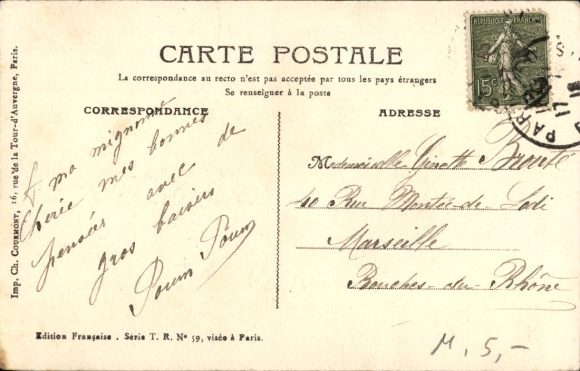 CARTE POSTALE
La correspondance au recto n'est pas acceptée par tous les pays étrangers
Se renseigner à la poste
CORRESPONDANCE
ma mignonne
cherie mes bonnes
pensées avec de
gros baisers
ADRESSE
Mademoiselle Ginette
40 Rue Montée-de Lodi
Marseille
Bouches-du-Rhône
REPUBLIQUE FRANÇAISE
15c
PARIS
Imp. Ch. COURMONT, 16, rue de la Tour-d'Auvergne, Paris.
Edition Française . Série T. R. No 59, visée à Paris.
M. 5,-